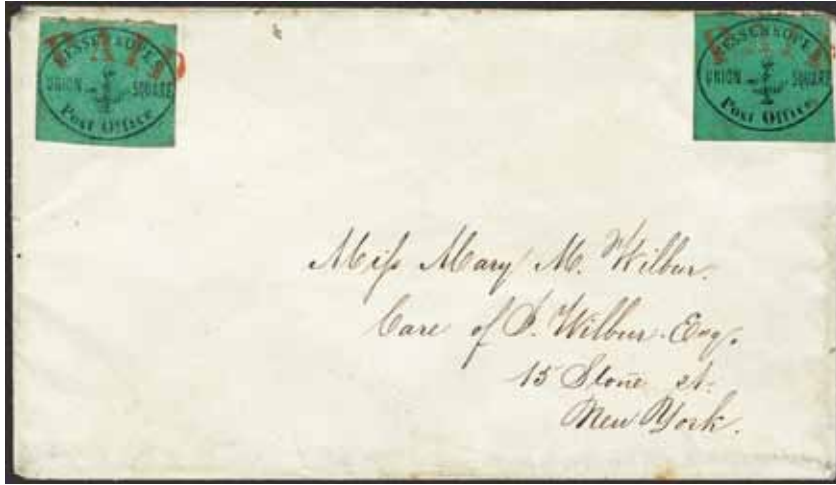 MESSENKOPE'S
PAID
UNION SQUARE
Post Office
MESSENKOPE'S
PAID
UNION SQUARE
Post Office
Miſs Mary M. Wilbur.
Care of S. Wilbur. Esq.
15 Stone st.
New York.